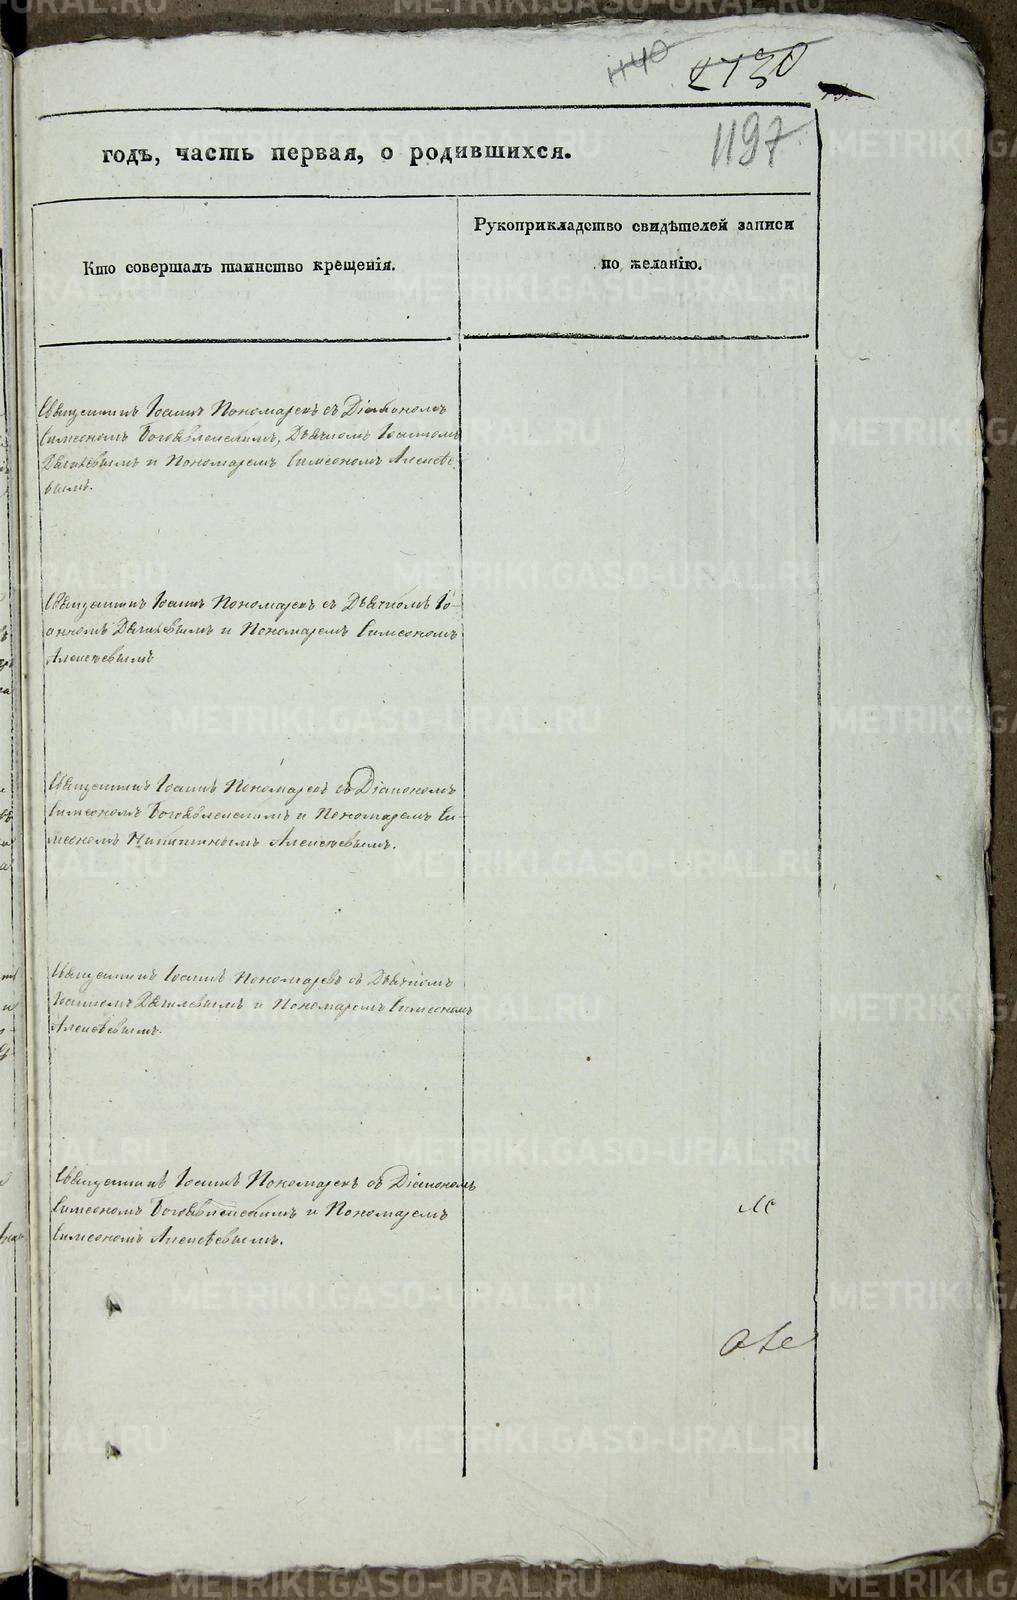 1140
2730
1197
годъ, часть первая, о родившихся.
Кто совершалъ таинство крещенія.
Рукоприкладство свидѣтелей записи
по желанію.
Священникъ Іоаннъ Пономаревъ съ Діакономъ
Симеономъ Богоявленскимъ, Дьячкомъ Іоанномъ
и Пономаремъ Симеономъ Алексѣе-
вымъ.
Священникъ Іоаннъ Пономаревъ съ Дьячкомъ Іо-
анномъ и Пономаремъ Симеономъ
Алексѣевымъ
Священникъ Іоаннъ Пономаревъ съ Діакономъ
Симеономъ Богоявленскимъ и Пономаремъ Си-
меономъ Алексѣевымъ.
Священникъ Іоаннъ Пономаревъ съ Дьячкомъ
Іоанномъ и Пономаремъ Симеономъ
Алексѣевымъ.
Священникъ Іоаннъ Пономаревъ съ Діакономъ
Симеономъ Богоявленскимъ и Пономаремъ
Симеономъ Алексѣевымъ.
METRIKI.GASO-URAL.RU